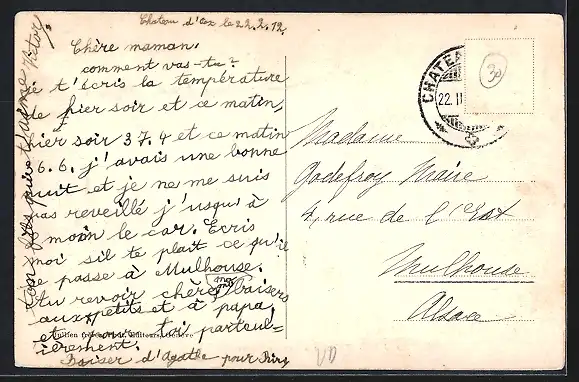 Chateau d'Oex le 22.2.12.
Chère maman.
comment vas-tu?
je t'écris la température
de hier soir et ce matin,
hier soir 37.4 et ce matin
6.6. j'avais une bonne
nuit et je ne me suis
pas reveillé j'usqu'à
moin le car. Ecris
moi s'il te plait ce qu'il
se passe à Mulhouse.
Au revoir chère Baisers
aux petits et à papa
et à toi parteul=
ièrement.
Baiser d'Agathe pour
ton fils qui t'adore Victor.
CHATEAU
22. II
30
Madame
Godefroy Maire
4, rue de l'Est
Mulhouse
Alsace
VD